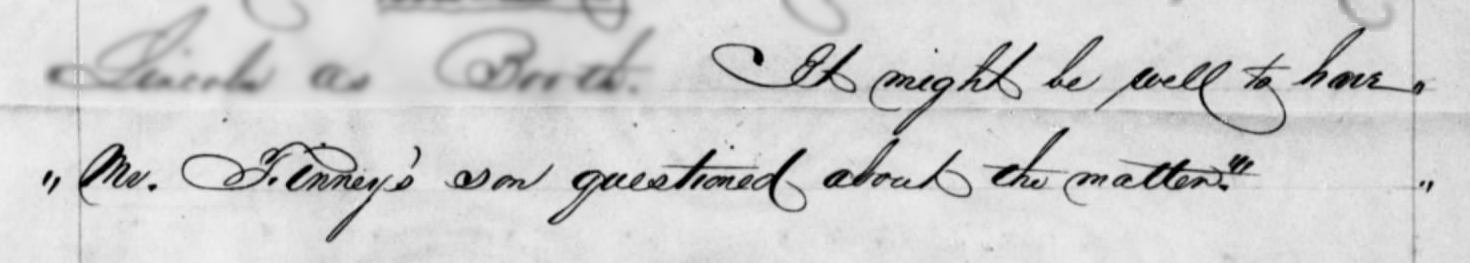 Lincoln as Booth. It might be well to have "
" Mr. Finney's son questioned about the matter."' "